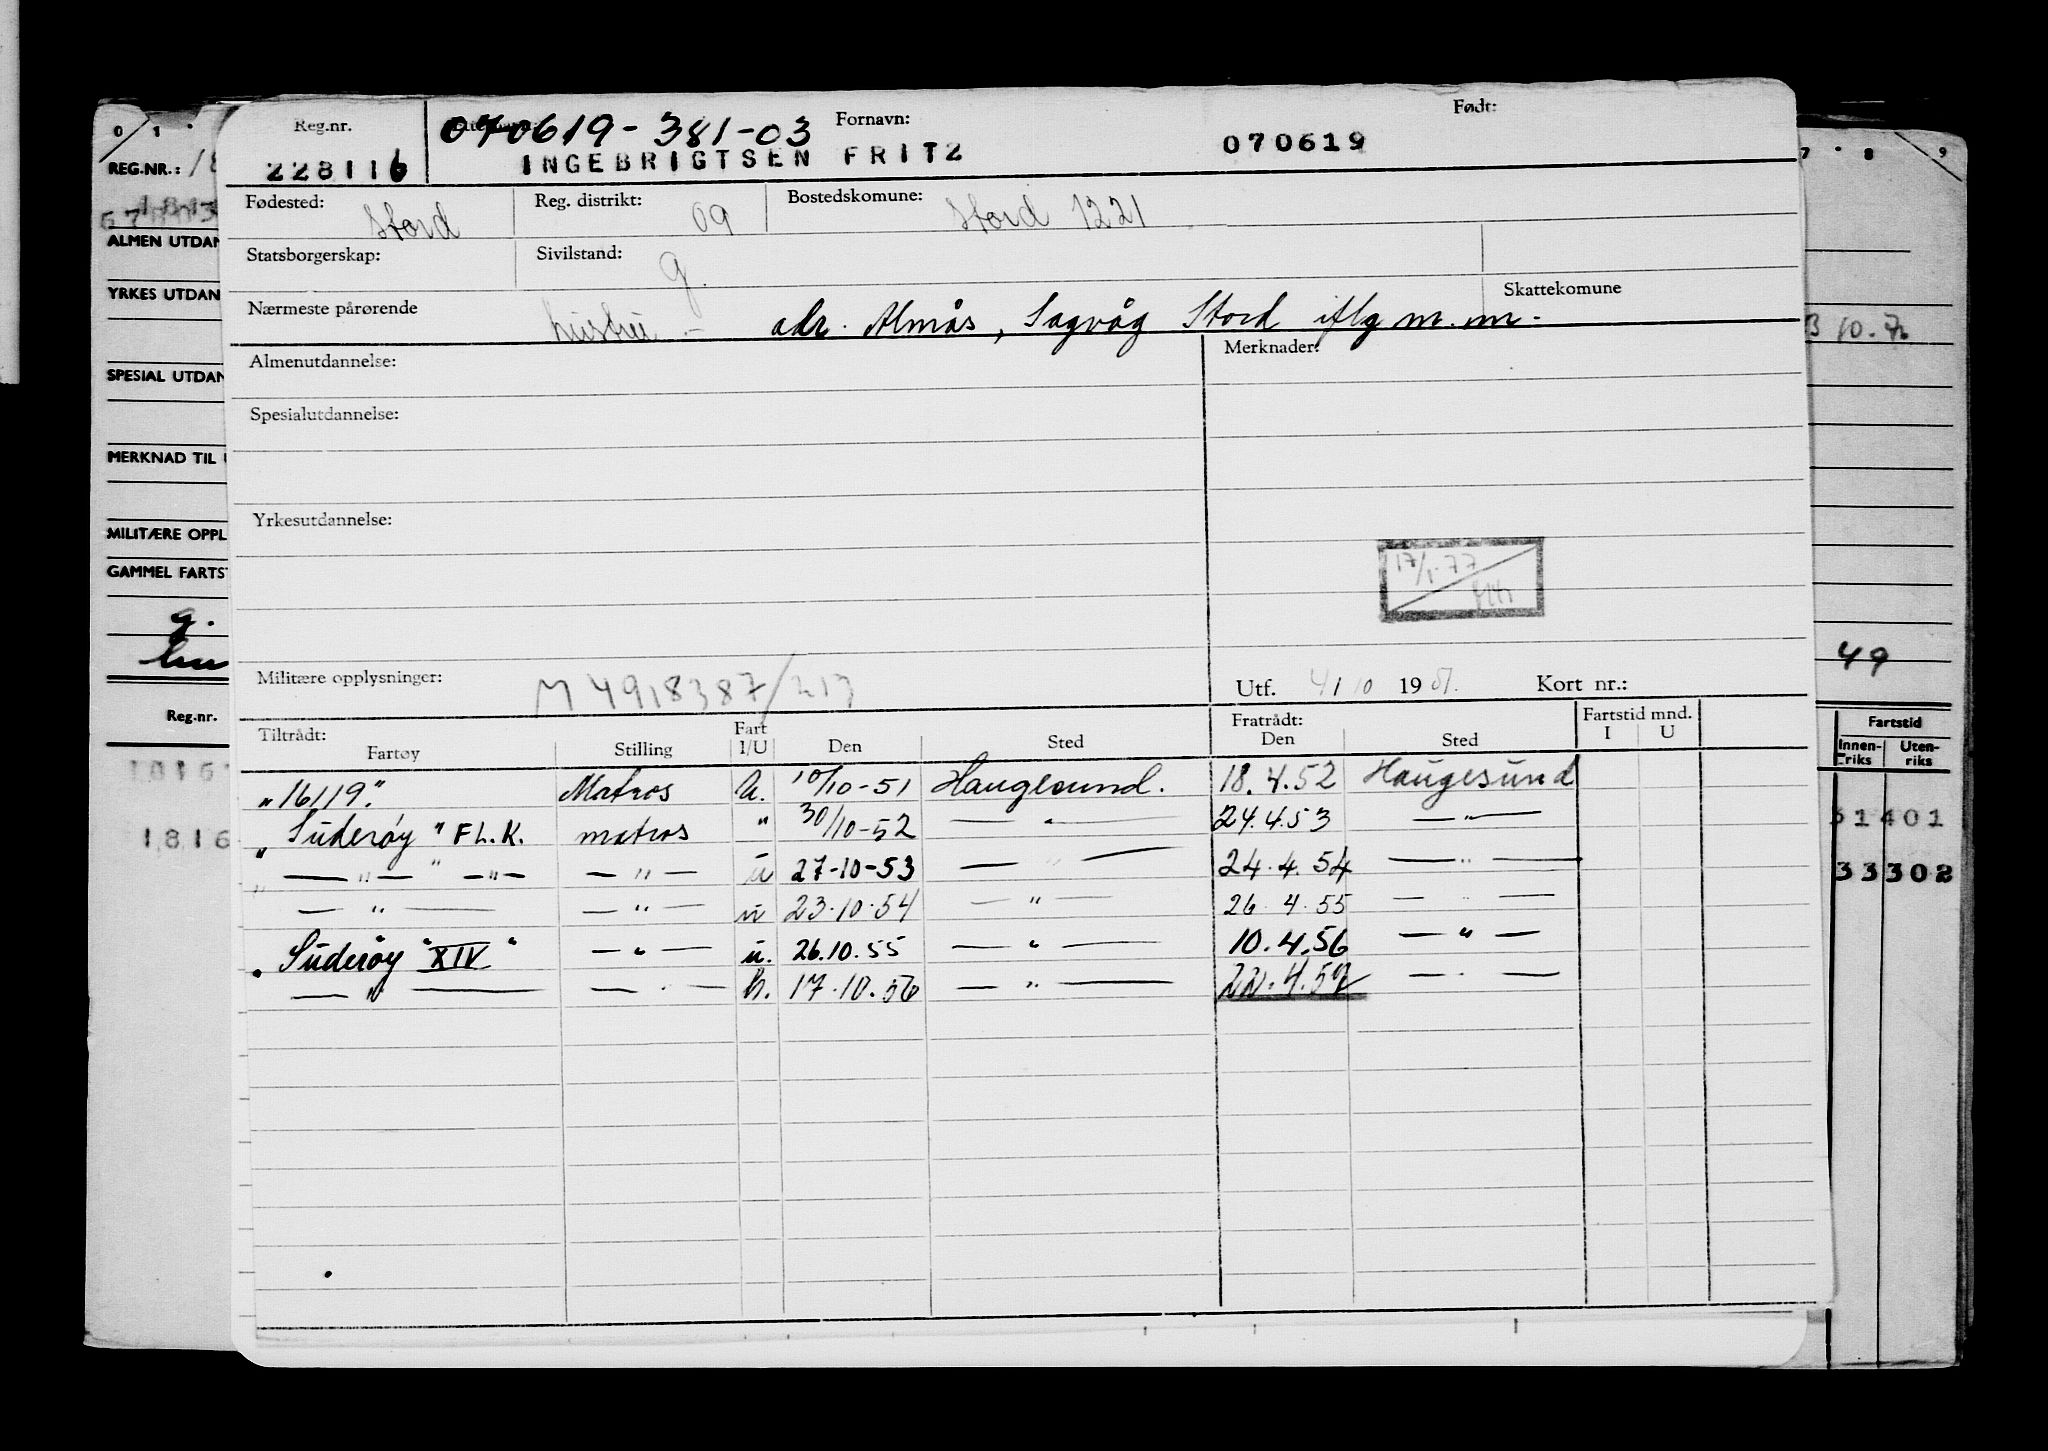 0 1 7 8 9
REG.NR.:
ALMEN UTDAN
YRKES UTDAN
SPESIAL UTDAN
MERKNAD TIL
MILITÆRE OPPL
GAMMEL FARTST
g.
Reg.nr.
1816
B 10.
49
Fartstid
Innen-riks Uten-riks
51401
33302
Reg.nr. Fornavn: Født:
070619-381-03
228116 INGEBRIGTSEN FRITZ 070619
Fødested: Stord Reg. distrikt: 09 Bostedskomune: Stord 1221
Statsborgerskap: Sivilstand: g.
Nærmeste pårørende hustru - adr. Almås, Sagvåg Stord iflg m.m. Skattekomune
Almenutdannelse: Merknader:
Spesialutdannelse:
Yrkesutdannelse:
17/1-77
Militære opplysninger: M 4918387/213 Utf. 4/10 1951. Kort nr.:
Tiltrådt: Fart Fratrådt: Fartstid mnd.
Fartøy Stilling I/U Den Sted Den Sted I U
"16119." Matros U. 10/10-51 Haugesund. 18.4.52 Haugesund
"Suderøy" FL.K. matros " 30/10-52 — " — 24.4.53 — " —
" — " — " — " — — " — u 27-10-53 — " — 24.4.54 — " —
— " — — " — u 23.10.54 — " — 26 4.55 — " —
"Suderøy "XIV" — " — u. 26.10.55 — " — 10.4.56 — " —
— " — — " — U. 17.10.56 — " — 22.4.57 — " —